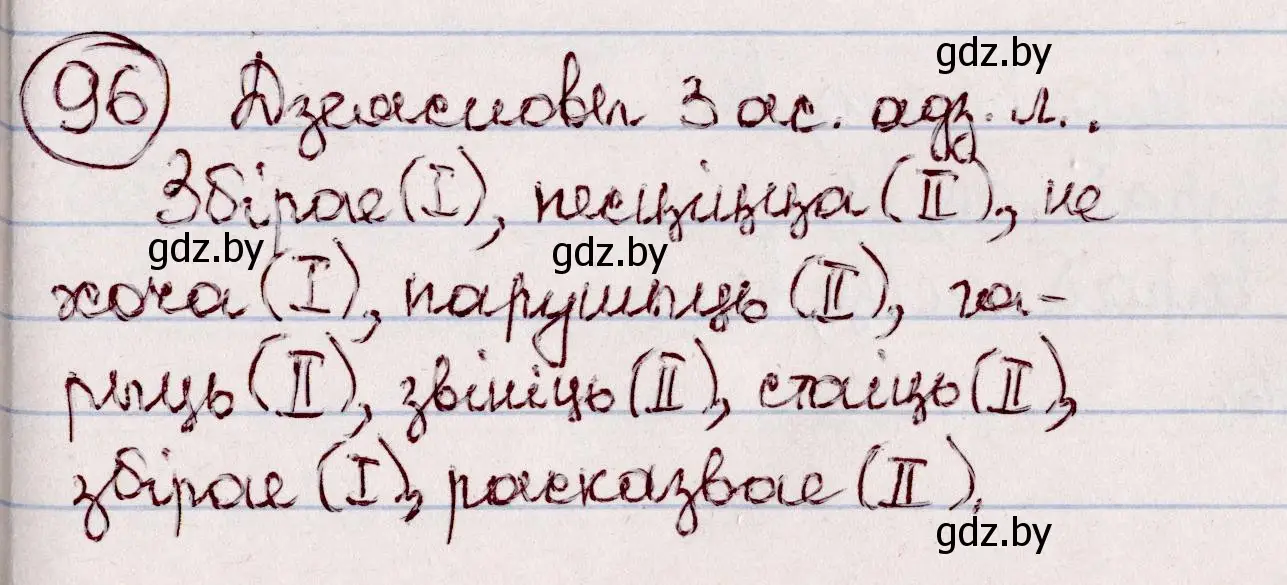 gdz.by
96 Дзеясловы 3 ас. адз. л..
Збірае (I), песціцца (II), не
gdz.by gdz.by
хоча (I), парушыць (II), га-
рыць (II), звініць (II), стаіць (II),
збірае (I), расказвае (II).
gdz.by